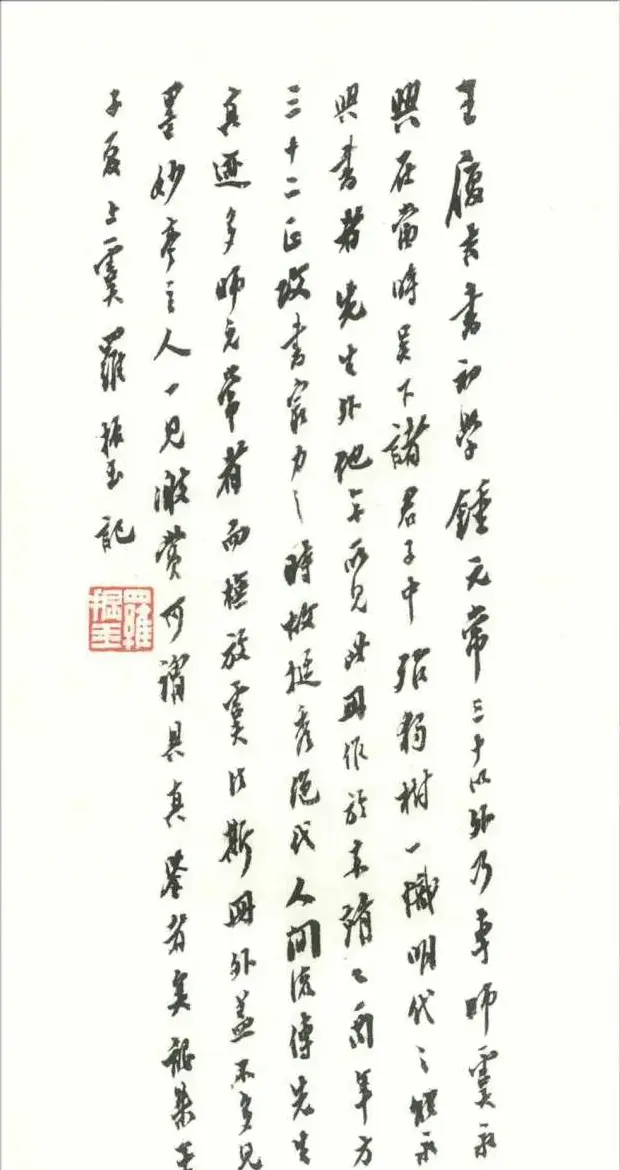 王履吉書初學鍾元常三十以外乃專師虞永
興在當時吳下諸君子中殆獨樹一幟明代之能永
興書者先生外他無所見此冊作於嘉靖乙酉年方
三十二正攻書最力之時故挺秀絕代人間流傳先生
真迹多師元常者而橅放虞法斯冊外蓋不多見
墨妙亭主人一見激賞可謂具真鑒者矣
子夏上虞羅振玉記
羅振玉